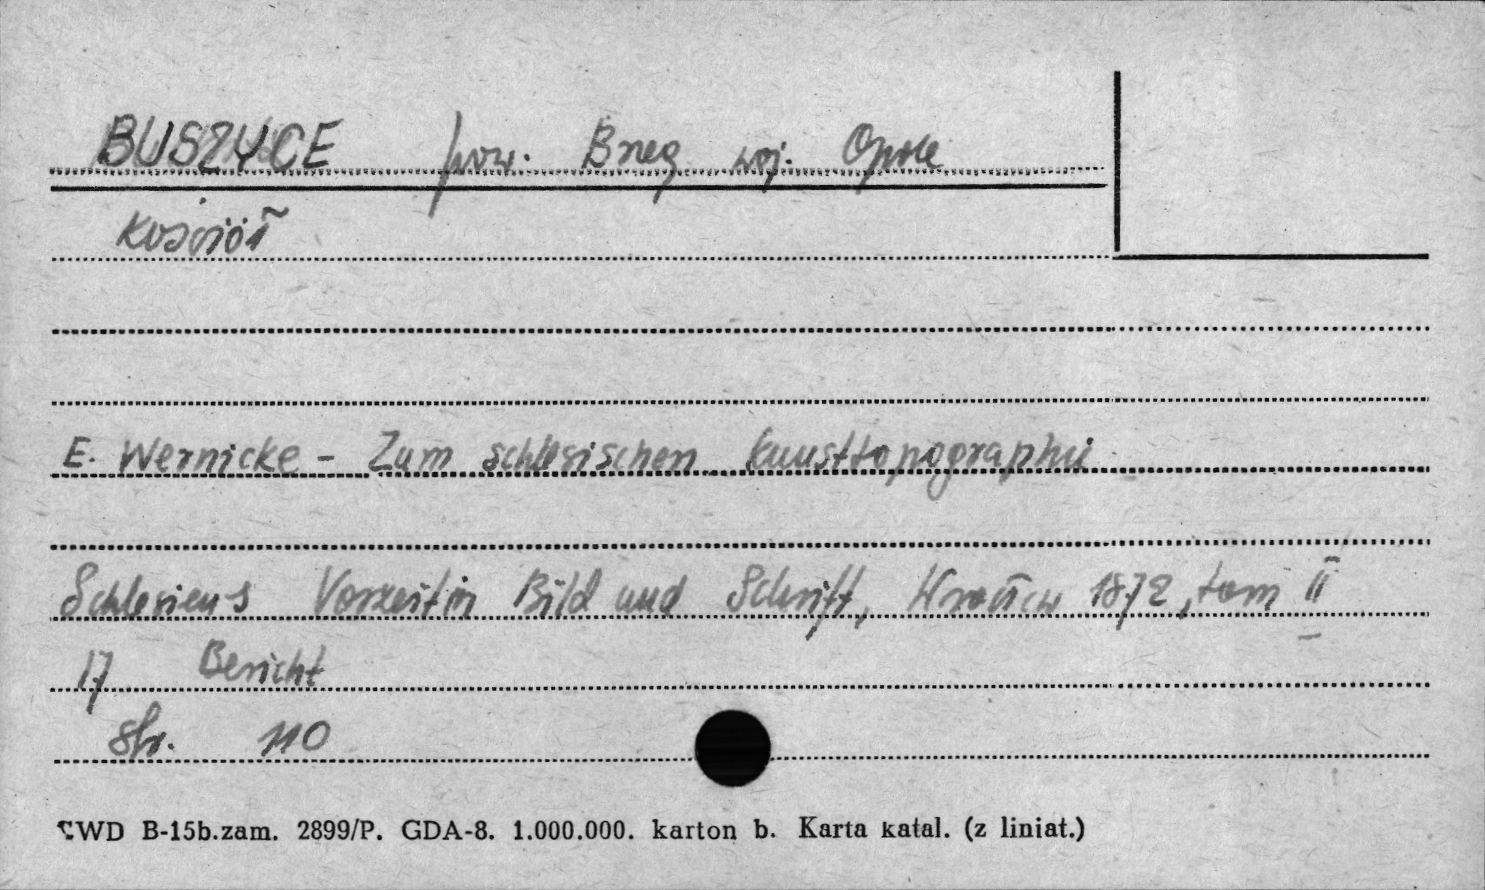 BUSZYCE pow. Brzeg woj. Opole
Kościół
E. Wernicke - Zum schlesischen Kunsttopographie
Schlesiens Vorzeit in Bild und Schrift, Wrocław 1872, tom II
17 Bericht
Str. 110
CWD B-15b.zam. 2899/P. GDA-8. 1.000.000. karton b. Karta katal. (z liniat.)